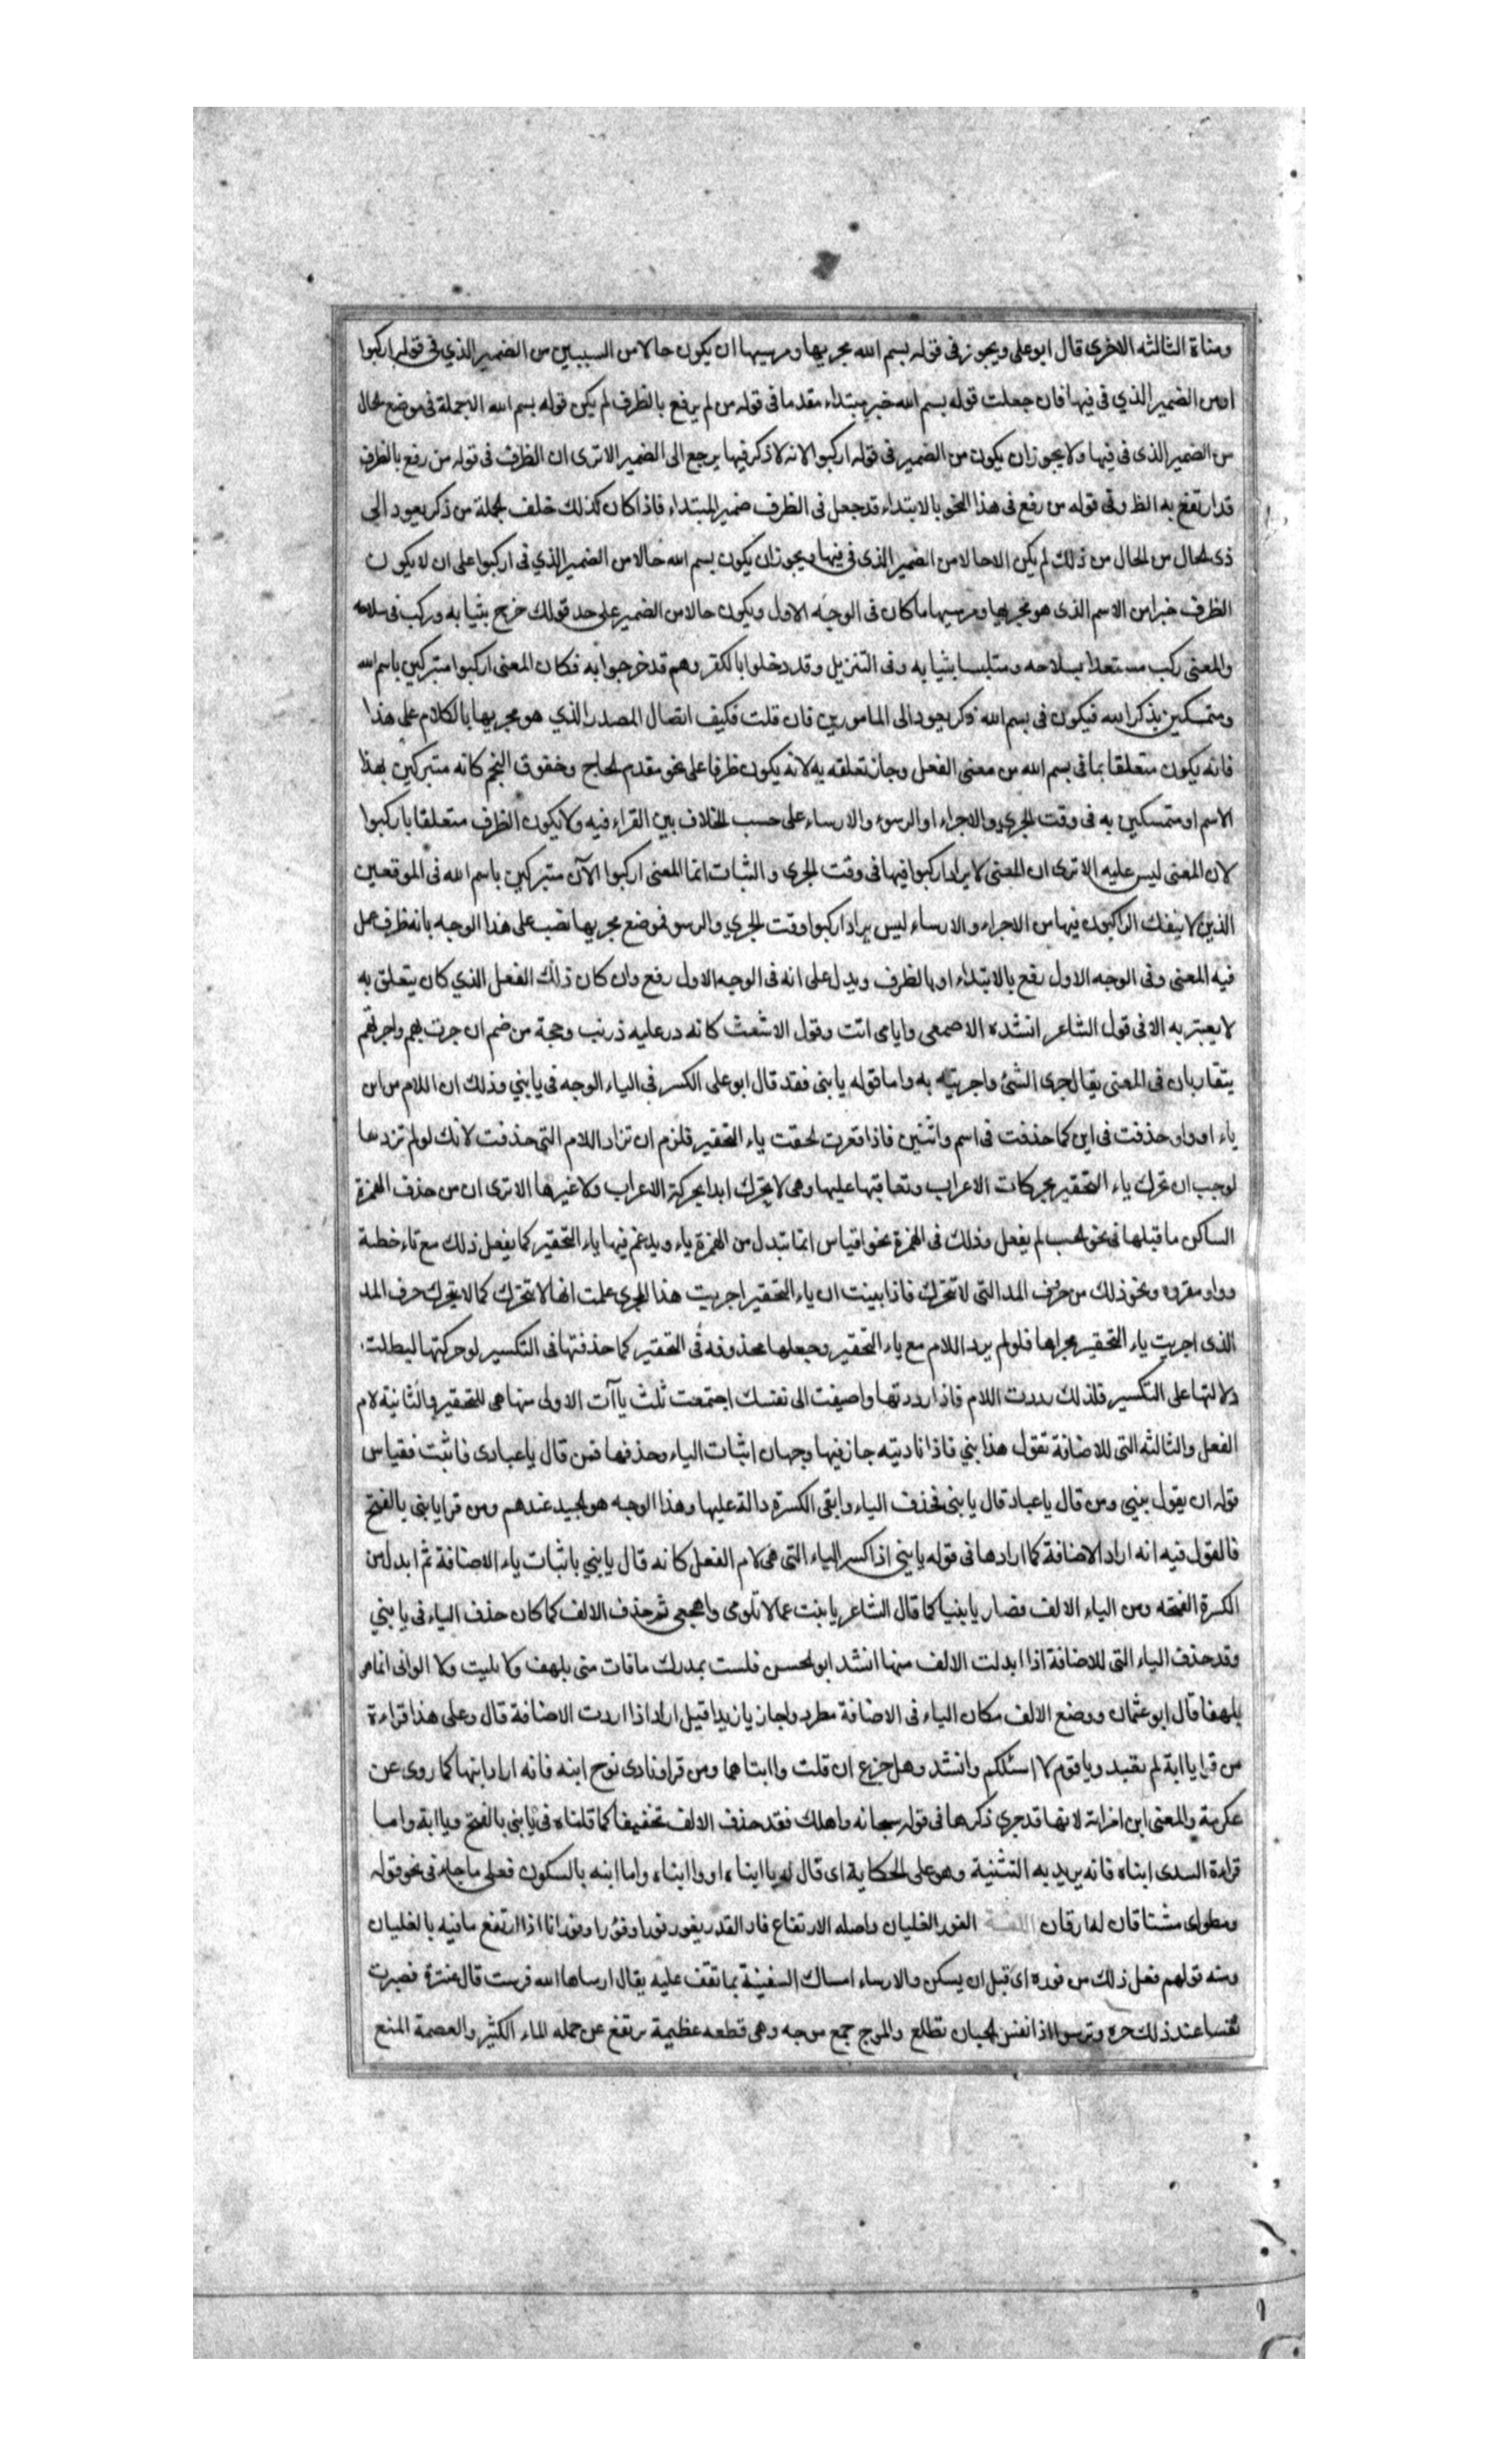 ومناة الثالثه الاخرى قال ابو على ويجوز فى قوله بسم الله مجريها ومرسيها ان يكون حالا من السببين من الضمير الذي فى قوله اركبوا
او من الضمير الذي فى فيها فان جعلت قوله بسم الله خبر مبتداء مقدما فى قوله من لم يرفع بالظرف لم يكن قوله بسم الله الا جملة فى موضع الحال
من الضمير الذى فى فيها ولا يجوز ان يكون من الضمير فى قوله اركبوا لانه لا ذكر فيها يرجع الى الضمير الا ترى ان الظرف فى قوله من رفع بالظرف
قد ارتفع به الظ وفى قوله من رفع فى هذا النحو بالابتداء قد جعل فى الظرف ضمير المبتداء فاذا كان كذلك خلف الجملة من ذكر يعود الى
ذى الحال من الحال من ذلك لم يكن الا حالا من الضمير الذى فى فيها ويجوز ان يكون بسم الله حالا من الضمير الذي فى اركبوا على ان لا يكون
الظرف خبرا من الاسم الذى هو مجريها ومرسيها ما كان فى الوجه الاول ويكون حالا من الضمير على حد قولك خرج بثيابه وركب فى سلاحه
والمعنى ركب مستعدا بسلاحه ومتلبسا بثيابه وفى التنزيل وقد دخلوا بالكفر وهم قد خرجوا به فكان المعنى اركبوا متبركين باسم الله
ومتمسكين بذكر الله فيكون فى بسم الله ذكر يعود الى المامورين فان قلت فكيف اتصال المصدر الذي هو مجريها بالكلام على هذا
فانه يكون متعلقا بما فى بسم الله من معنى الفعل وجاز تعلقه به لانه يكون ظرفا على نحو مقدم الحاج وخفوق النجم كانه متبركين بهذا
الاسم او متمسكين به فى وقت الجري والاجراء او الرسو والارساء على حسب الخلاف بين القراء فيه ولا يكون الظرف متعلقا باركبوا
لان المعنى ليس عليه الا ترى ان المعنى لا يراد اركبوا فيها فى وقت الجرى والثبات انما المعنى اركبوا الآن متبركين باسم الله فى الموقعين
الذين لا ينفك الراكبون فيها من الاجراء والارساء ليس يراد اركبوا وقت الجري والرسو فموضع مجريها نصب على هذا الوجه بانه ظرف عمل
فيه المعنى وفى الوجه الاول رفع بالابتداء او بالظرف ويدل على انه فى الوجه الاول رفع وان كان ذلك الفعل الذي كان يتعلق به
لا يعتبر به الا فى قول الشاعر انشده الاصمعى وايامى اتت وقول الاشعث كانه در عليه ذرنب وحجة من ضم ان جرت بهم واجرتهم
يتقاربان فى المعنى يقال جرى الشئ واجريته به واما قوله يا بنى فقد قال ابو على الكسر فى الياء الوجه فى يا بني وذلك ان اللام من ابن
ياء او واو حذفت فى ابن كما حذفت فى اسم واثنين فاذا حقرت لحقت ياء التحقير فلزم ان تزاد اللام التى حذفت لانك لو لم تزدها
لوجب ان تحرك ياء التحقير بحركات الاعراب وتعاقبها عليها وهى لا يتحرك ابدا بحركة الاعراب ولا غيرها الا ترى ان من حذف الهمزة
الساكن ما قبلها فى نحو لم يفعل وذلك فى الهمزة نحو اقياس انما تبدل من الهمزة ياء ويدغم فيها ياء التحقير كما يفعل ذلك مع تاء خطئة
وواو مقروه ونحو ذلك من حرف المد التى لا تتحرك فاذا بينت ان ياء التحقير اجريت هذا المجرى علمت انها لا تتحرك كما لا يتحرك حرف المد
الذى اجريت ياء التحقير مجراها فلو لم يرد اللام مع ياء التحقير وجعلها محذوفة فى التحقير كما حذفتها فى التكسير لو حركتها لبطلت
دلالتها على التكسير فلذلك رددت اللام فاذا رددتها واضيفت الى نفسك اجتمعت ثلث ياآت الاولى منها هى للتحقير والثانية لام
الفعل والثالثه التى للاضافة تقول هذا بني فاذا ناديته جاز فيها وجهان اثبات الياء وحذفها فمن قال يا عبادى فاثبت فقياس
قوله ان يقول يبني ومن قال يا عباد قال يا بنى فحذف الياء وابقى الكسرة دالة عليها وهذا الوجه هو الجيد عندهم ومن قرا يا بنى بالفتح
فالقول فيه انه اراد الاضافة كما ارادها فى قوله يا بني اذا كسر الياء التى هى لام الفعل كانه قال يا بني باثبات ياء الاضافة ثم ابدل من
الكسرة الفتحه ومن الياء الالف فصار يا بنيا كما قال الشاعر يا بنت عما لا تلومى واهجعى ثم حذف الالف كما كان حذف الياء فى يا بني
وقد حذف الياء التى للاضافة اذا ابدلت الالف منها انشد ابو الحسن فلست بمدرك ما فات منى بلهف ولا بليت ولا الوانى انما هو
بلهفا قال ابو عثمان ووضع الالف مكان الياء فى الاضافة مطرد واجاز يا زيدا قبل اراد اذا اردت الاضافة قال وعلى هذا قراءة
من قرا يا ابة لم تعبد ويا قوم لا اسئلكم وانشد وهل جزع ان قلت وا ابتا هما ومن قرا ونادى نوح ابنه فانه اراد ابنها كما روى عن
عكرمة والمعنى ابن امراته لانها قد جرى ذكرها فى قوله سبحانه واهلك فقد حذف الالف تخفيفا كما قلناه فى يا بنى بالفتح ويا ابة واما
قراءة السدى ابناه فانه يريد به التثنية وهو على الحكاية اى قال له يا ابناه او وا ابناه واما ابنه بالسكون فعلى ما جاء فى نحو قوله
ومطواى مشتاقان له ارقان اللغة الفور الغليان واصله الارتفاع فار القدر يفور فورا وفؤرا وفورانا اذا ارتفع ما فيه بالغليان
ومنه قولهم فعل ذلك من فوره اى قبل ان يسكن والارساء امساك السفينة بما تقف عليه يقال ارساها الله فرست قال عنترة فصبرت
نفسا عند ذلك حره وترسو اذا نفس الجبان تطلع والموج جمع موجه وهى قطعه عظيمة ترتفع عن جمله الماء الكثير والعصمة المنع